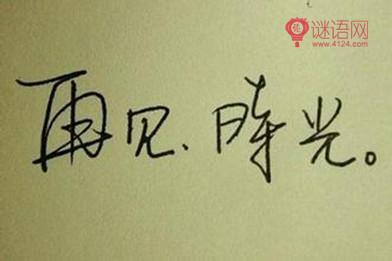 谜语网
www.4124.com
再见、時光。